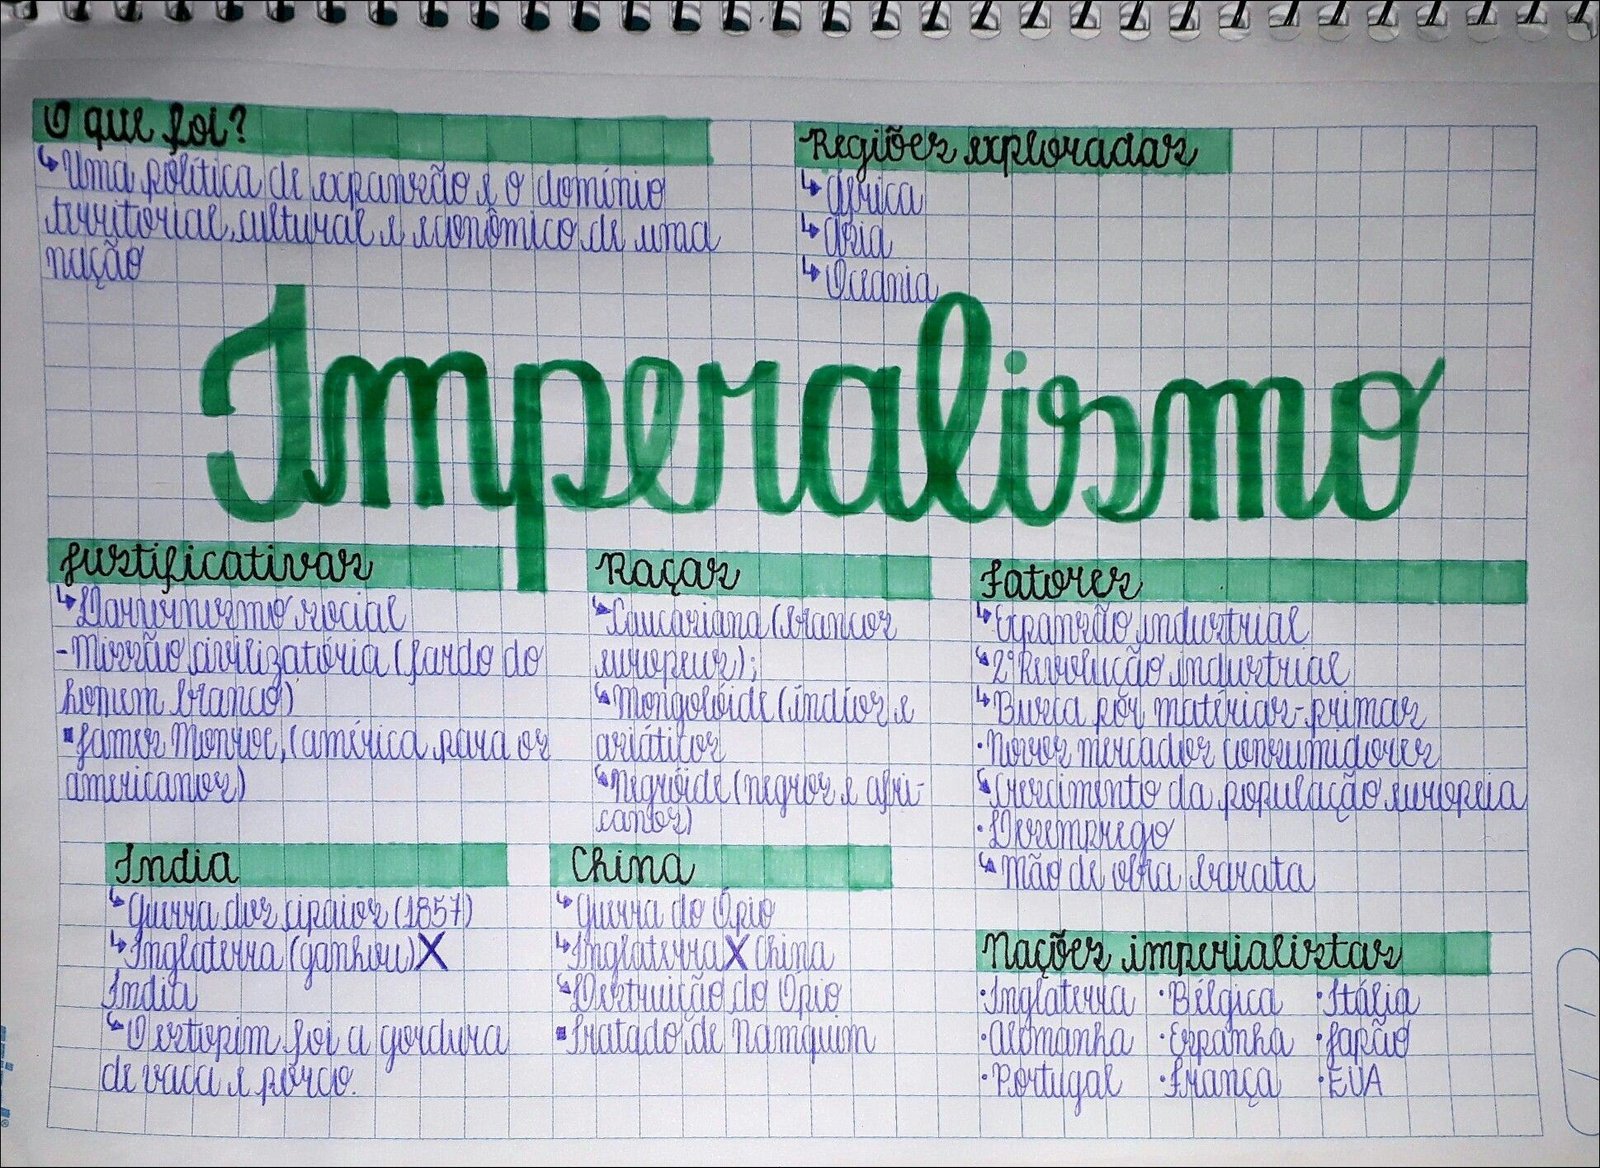 O que foi?
↳ Uma política de expansão e o domínio
territorial, cultural e econômico de uma
nação
Regiões exploradas
↳ África
↳ Ásia
↳ Oceania
Imperalismo
Justificativas
↳ Darwinismo social
- Missão civilizatória (fardo do
homem branco)
▪ James Monroe, (américa para os
americanos)
Raças
↳ Caucasiana (brancos
europeus);
↳ Mongolóide (índios e
asiáticos
↳ Negróide (negros e afri-
canos)
Fatores
↳ Expansão industrial
↳ 2º Revolução industrial
↳ Busca por matérias-primas
· Novos mercados consumidores
↳ Crescimento da população europeia
· Desemprego
↳ Mão de obra barata
Índia
↳ Guerra dos cipaios (1857)
↳ Inglaterra (ganhou) X
Índia
↳ O estopim foi a gordura
de vaca e porco.
China
↳ Guerra do Ópio
↳ Inglaterra X China
↳ Destruição do Ópio
▪ Tratado de Namquim
Nações imperialistas
· Inglaterra · Bélgica · Itália
· Alemanha · Espanha · Japão
· Portugal · França · EUA